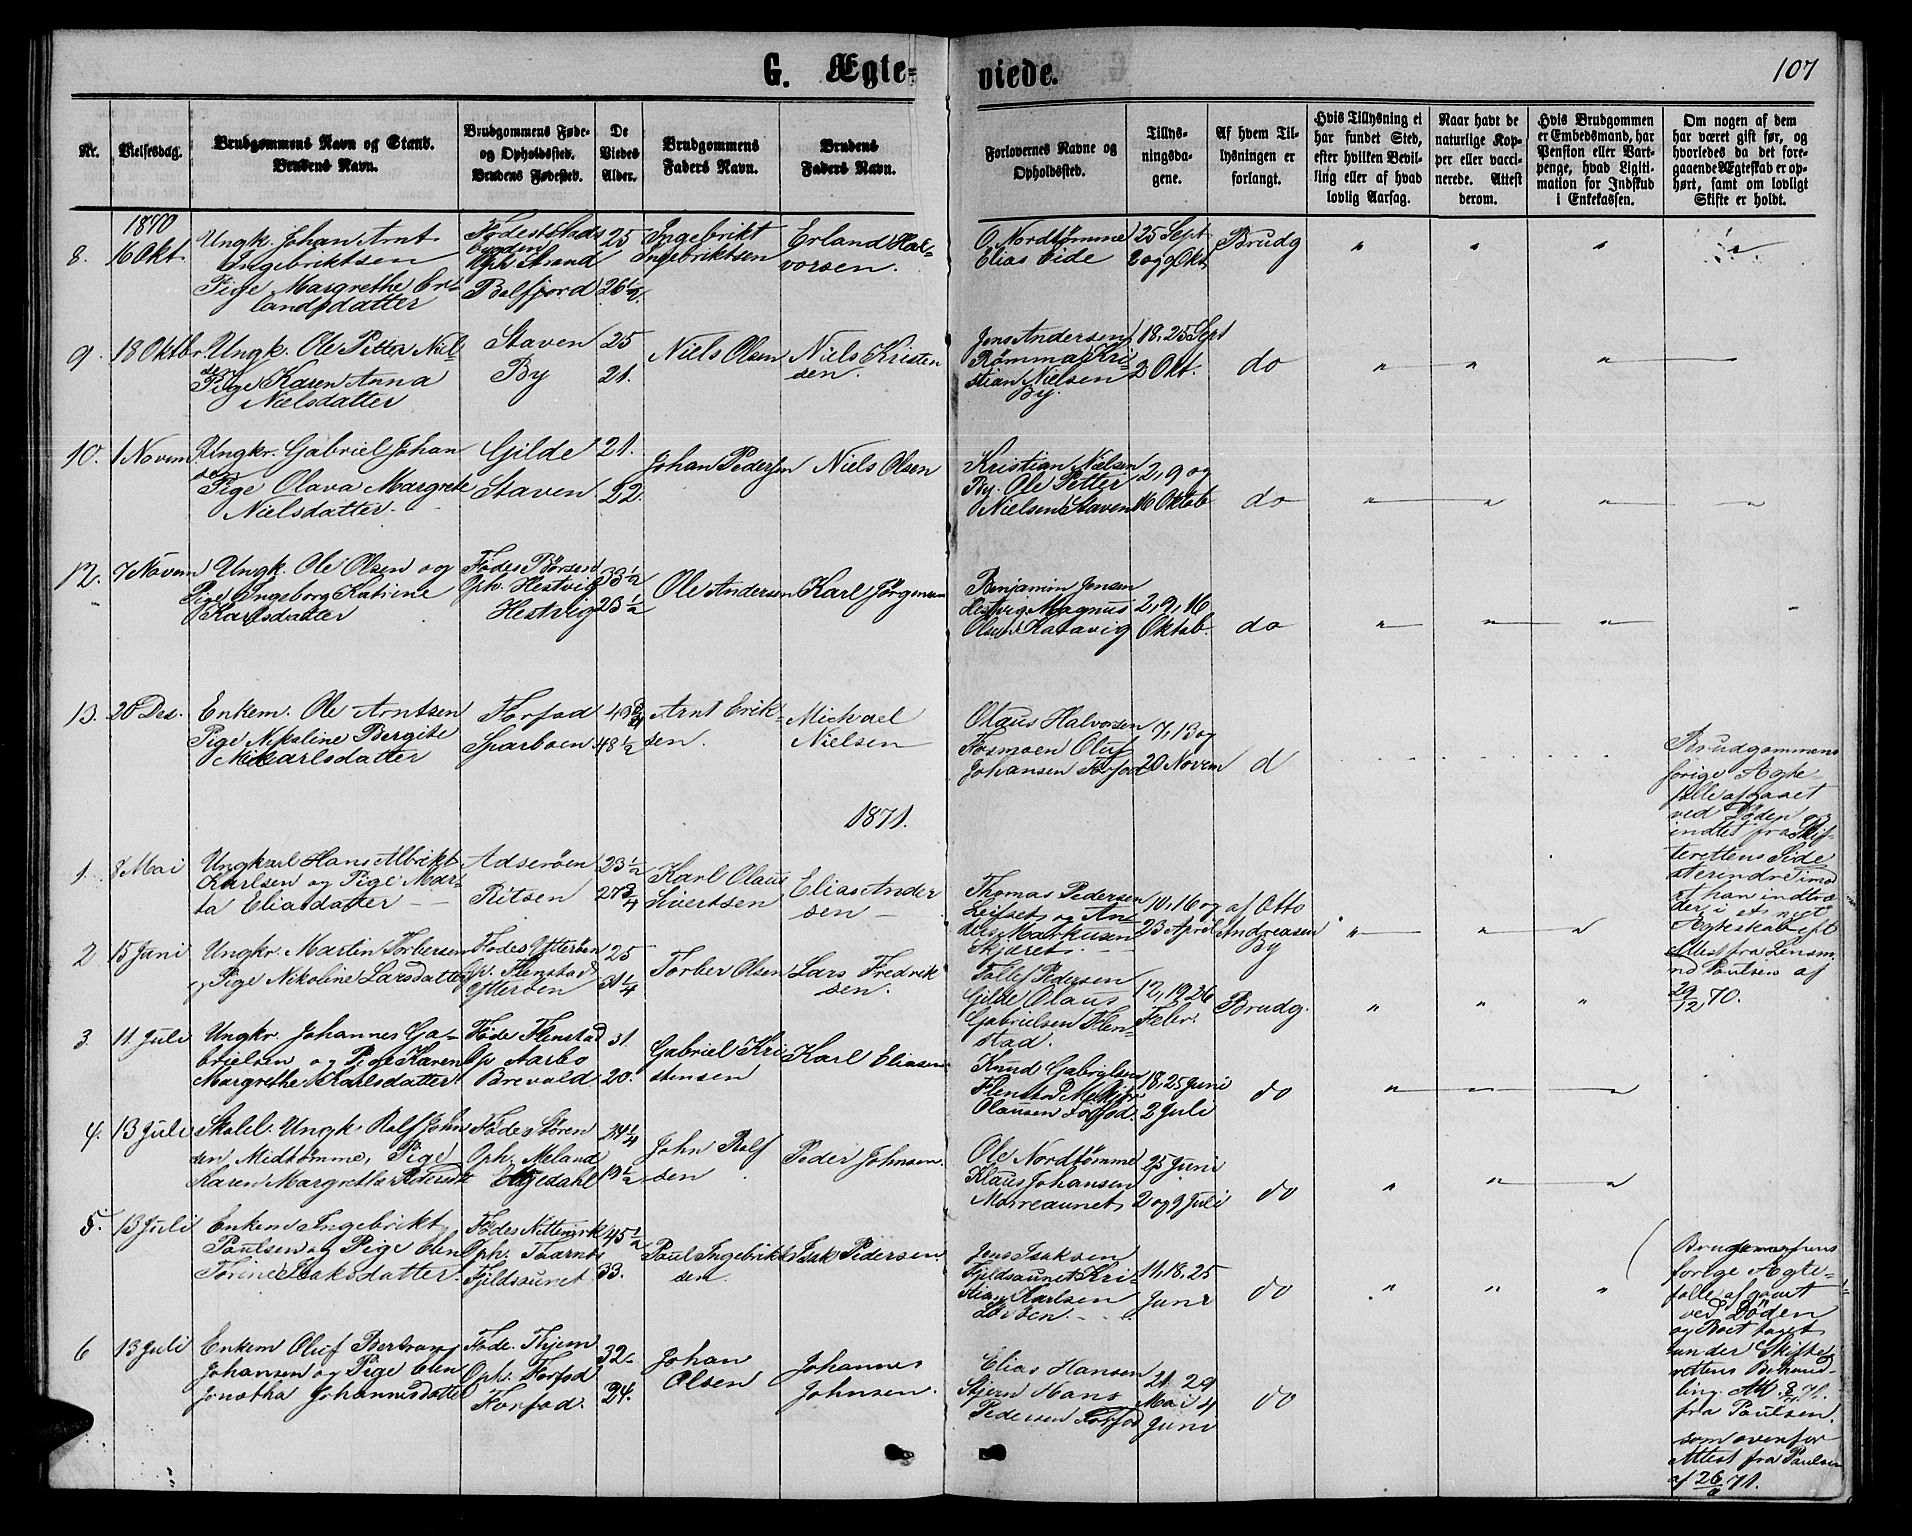 G. Ægte=
viede.
107
Nr.
Vielsesdag.
Brudgommens Navn og Stand.
Brudens Navn.
Brudgommens Føde-
og Opholdssted.
Brudens Fødested.
De
Viedes
Alder.
Brudgommens
Faders Navn.
Brudens
Faders Navn.
Forlovernes Navne og
Opholdssted.
Tillys-
ningsda-
gene.
Af hvem Til-
lysningen er
forlangt.
Hvis Tillysning ei
har fundet Sted,
efter hvilken Bevil-
ling eller af hvad
lovlig Aarsag.
Naar havt de
naturlige Kop-
per eller vacci-
nerede. Attest
derom.
Hvis Brudgommen
er Embedsmand, har
Pension eller Vart-
penge, hvad Ligiti-
mation for Indskud
i Enkekassen.
Om nogen af dem
har været gift før, og
hvorledes da det fore-
gaaende Ægteskab er op-
hørt, samt om lovligt
Skifte er holdt.
1870
8. 16 Okt.
Ungk. Johan Arnt
Ingebriktsen
Pige Margrethe Er-
landsdatter
Fødest. Stads
bygden
Oph. Strand
Belfjord
25
26 1/2.
Ingebrikt
Ingebriktsen
Erland Hal-
vorsen.
O. Nordtømme
Elias Eide
25 Sept.
2 og 9 Okt.
Brudg
" " " "
9. 18 Oktbr.
Ungk. Ole Petter Niel
sen
Pige Karen Anna
Nielsdatter
Staven
By
25
21.
Niels Olsen
Niels Kristen
sen.
Jens Andersen
Rømma Kri-
stian Nielsen
By.
18, 25 Sept
2 Okt.
do
" " "
10. 1 Novem
Ungkr. Gabriel Johan
sen
Pige Olava Margrete
Nielsdatter.
Gilde
Staven
21.
22.
Johan Pedersen
Niels Olsen
Kristian Nielsen
By. Ole Petter
Nielsen Staven
2, 9 og
16 Oktob
do
" " " "
12. 7 Novem
Ungk. Ole Olsen og
Pige Ingeborg Katrine
Karlsdatter
Fødes Børsen
Oph. Hestvig
Hestvig
33 1/2
23 1/2
Ole Andersen
Karl Jørgensen
Benjamin Jensen
Hestvig Magnus
Olsen
2, 9, 16
Oktob.
do
" " "
13. 20 Des.
Enkem. Ole Arntsen
Pige Nikoline Bergite
Mikaelsdatter
Forfod
Sparboen
48 1/2
Arnt Erik-
sen.
Michael
Nielsen
Olaus Halvorsen
Fosmoen Oluf
Johansen Forfod
7, 13 og
20 Novem
d
Brudgommens
forige Ægte-
fælle afgaaet
ved Døden og
indtet fra Skif-
terettens Side
at erindre imod
at han indtræ
der i et nyt
Ægteskab eft
Attest fra Lensm
nd Paulsen af
29/12 70.
1871.
1. 8 Mai
Ungkarl Hans Albrikt
Karlsen og Pige Mar-
ta Eliasdatter
Adserøen
Ritsen
23 1/2
27 3/4
Karl Olaus
Sivertsen
Elias Ander
sen
Thomas Pedersen
Leifset og An-
Markusen
Skjæret
10, 16 og
23 April
af Otto
Andreasen
By
" " "
2. 15 Juni
Ungkr. Martin Torbersen
og Pige Nikoline Larsdatter
Fødes Ytterøen
Op. Flenstad
Ytterøen
25
31 1/4
Torber Olsen
Lars Fredrik
sen.
Tollef Pedersen
Gilde Olaus
Gabrielsen Flen-
stad.
12, 19, 26
Febr.
Brudg.
" " "
3. 11 Juli
Ungkr. Johannes Ga-
brielsen og Pige Karen
Margrethe Karlsdatter
Føde Flenstad
Op Aarbo
Brevald
31.
20.
Gabriel Kri
stensen
Karl Eliasen
Knud Gabrielsen
Flenstad
Olausen Forfod.
18, 25 Juni
2 Juli
do
" " "
4. 13 Juli
Skolel. Ungk. Rolf John
sen Midtømme, Pige
Karen Margretha Pedersd
Fødes Støren
Oph. Meland
24 1/4
19 1/2
John Rolf
sen
Peder Johnsen.
Ole Nordtømme
Klaus Johansen
Morreaunet
25 Juni
2 og 9 Juli
do
" " "
5. 13 Juli
Enkem Ingebrikt
Paulsen og Pige Elen
Torine Isaksdatter.
Oph. Taarnes
Fjeldsaunet
45 1/2
33.
Paul Ingebrikt
sen.
Isak Pedersen.
Jens Isaksen
Fjeldsaunet Kri-
stian Karlsen
11, 18, 25
Juni
do
" " "
Brudgommens
forige Ægte-
fælle afgaaet
ved Døden
og Boet taget
under Skifte
rettens Behand-
ling. Att.
fra Paulsen.
6 13 Juli
Enkem Oluf Bertram
Johansen og Pige Elen
Jonetha Johannesdatter
Føde. Thjem
Oph. Forfod
Forfod.
32
24.
Johan
Olsen
Johannes
Johnsen.
Elias Hansen
Stjern Hans
Pedersen Forfod
21, 29
Mai 4
Juni
do
som ovenfor
Attest fra Paulsen
af 26/6 71.